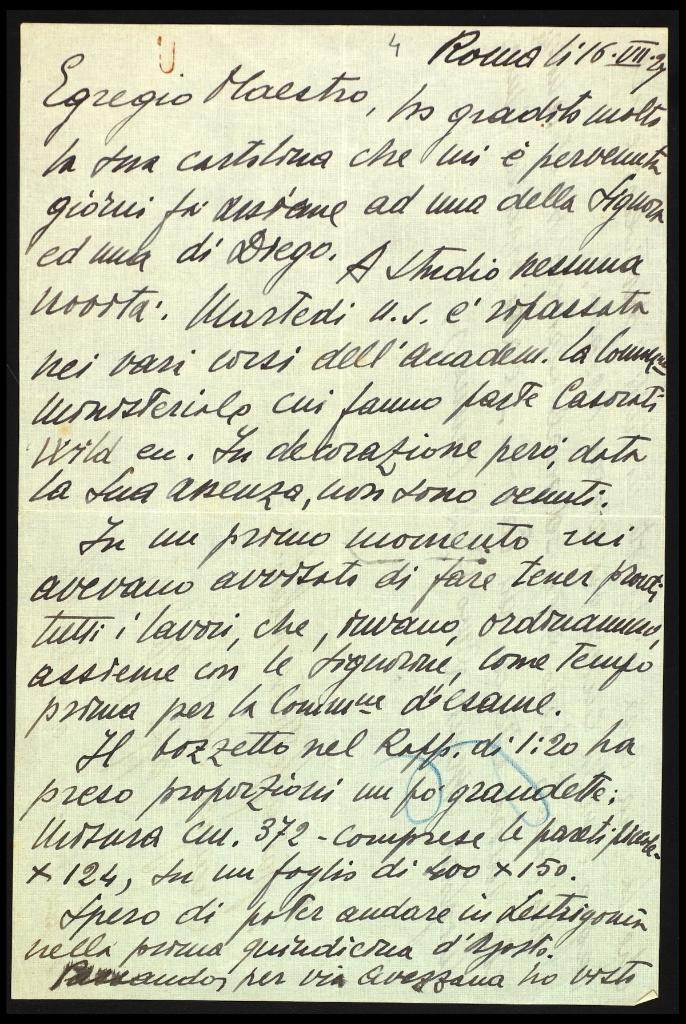 4
Roma lì 16·VII·27
Egregio Maestro, ho gradito molto
la sua cartolina che mi è pervenuta
giorni fa assieme ad una della Signora
ed una di Diego. A studio nessuna
novità. Martedì u.s. è ripassata
nei vari corsi dell'accadem. la Commne
ministeriale cui fanno parte Casorati
Wild ecc. In decorazione però, data
la sua assenza, non sono venuti.
In un primo momento mi
avevano avvisato di fare tener pronti
tutti i lavori, che, invano, ordinammo,
assieme con le Signorine, come tempo
prima per la Commne d'esame.
Il bozzetto nel Rapp. di 1:20 ha
preso proporzioni un pò grandette:
misura cm. 372 - comprese le pareti
× 124, su un foglio di 400 × 150.
Spero di poter andare in Lestrigonia
nella prima quindicina d'Agosto.
per via Avezzana ho visto